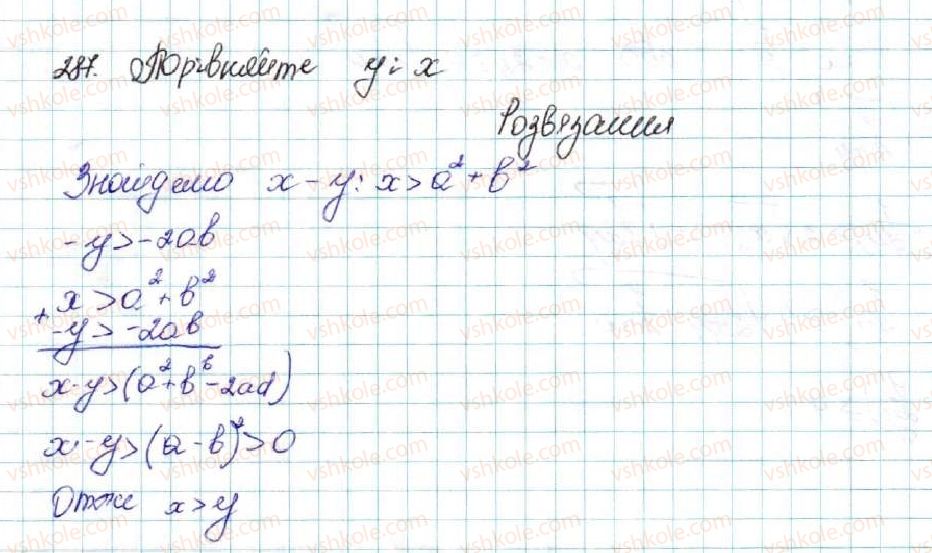 287. Порівняйте y і x
Розвязання
Знайдемо x - y: x > a² + b²
-y > -2ab
+ x > a² + b²
-y > -2ab
x - y > (a² + bᵇ - 2ad)
x - y > (a - b)² > 0
Отже x > y